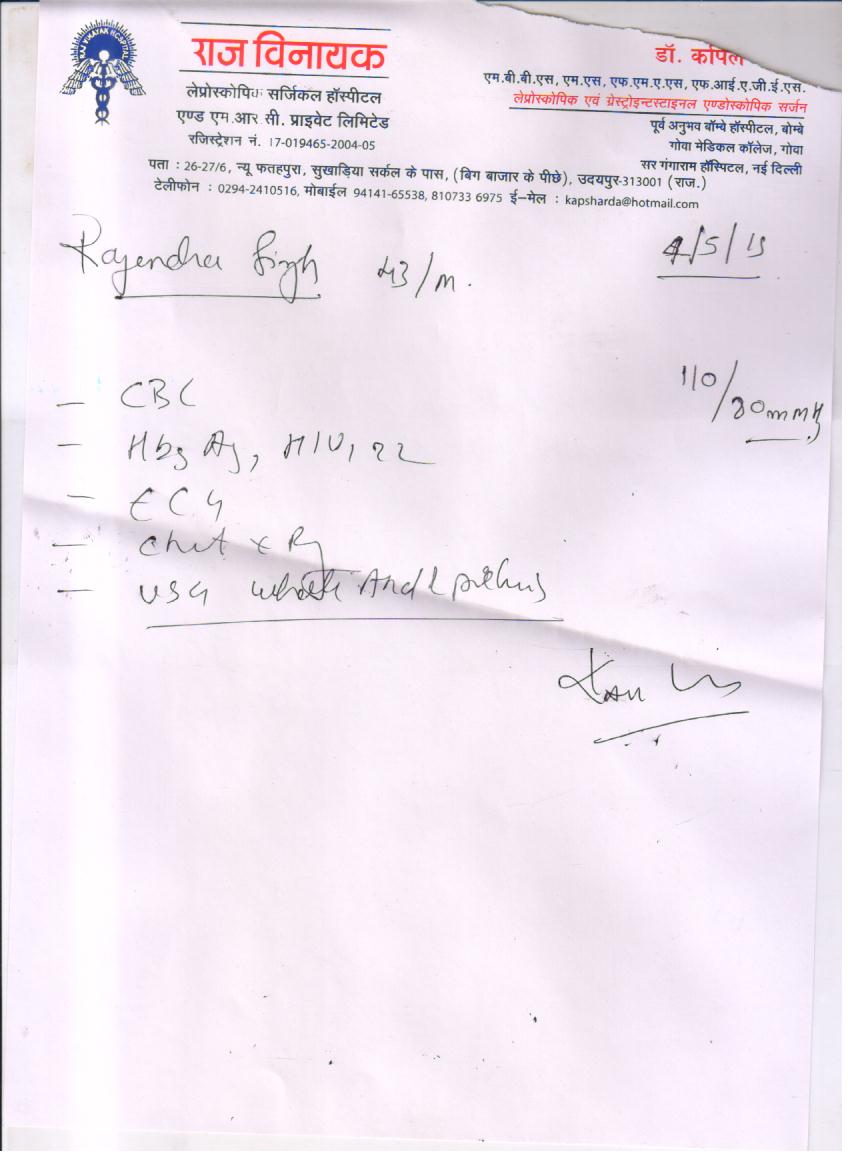 राज विनायक
लेप्रोस्कोपिक सर्जिकल हॉस्पीटल
एण्ड एम.आर.सी. प्राइवेट लिमिटेड
रजिस्ट्रेशन नं. 17-019465-2004-05
डॉ. कपिल
एम.बी.बी.एस, एम.एस, एफ.एम.ए.एस, एफ.आई.ए.जी.ई.एस.
लेप्रोस्कोपिक एवं ग्रेस्ट्रोइन्टस्टाइनल एण्डोस्कोपिक सर्जन
पूर्व अनुभव बॉम्बे हॉस्पीटल, बोम्बे
गोवा मेडिकल कॉलेज, गोवा
सर गंगाराम हॉस्पिटल, नई दिल्ली
पता : 26-27/6, न्यू फतहपुरा, सुखाड़िया सर्कल के पास, (बिग बाजार के पीछे), उदयपुर-313001 (राज.)
टेलीफोन : 0294-2410516, मोबाईल 94141-65538, 810733 6975 ई-मेल : kapsharda@hotmail.com
Rajendra Singh 43/m. 4/5/15
110/80mmHg
- CBC
- HbsAg, HIV,
- ECG
- Chest x Ray
- USG whole Abd &